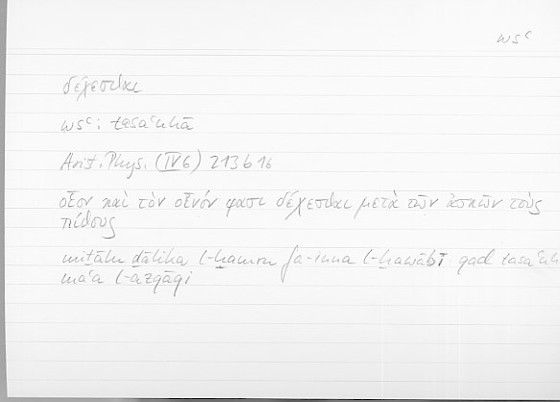 wsʿ
δέχεσθαι
wsʿ: tasaʿuhā
Arist. Phys. (IV 6) 213 b 16
οἷον καὶ τὸν οἶνόν φασι δέχεσθαι μετὰ τῶν ἀσκῶν τοὺς
πίθους
miṯālu ḏālika l-ḫamru fa-inna l-ḫawābī qad tasaʿuh
maʿa l-azqāqi